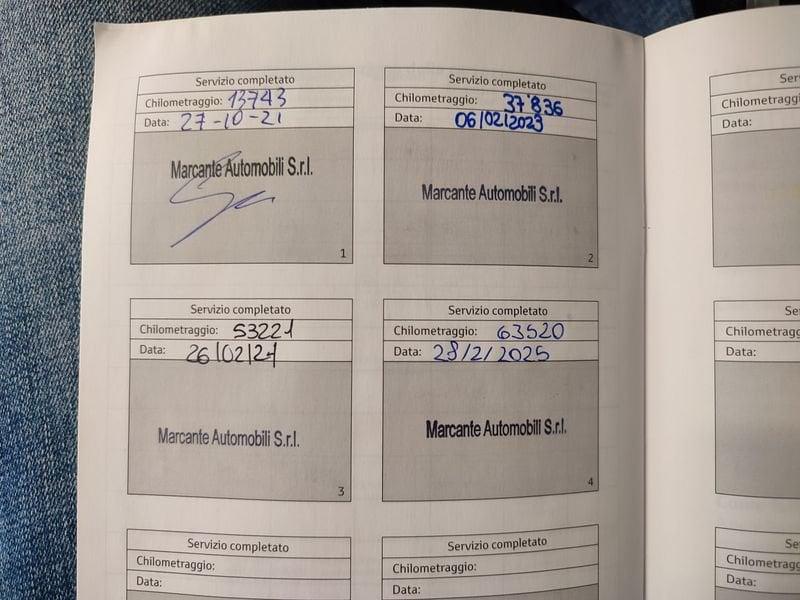 Servizio completato
Chilometraggio: 13743
Data: 27-10-21
Marcante Automobili S.r.l.
1
Servizio completato
Chilometraggio: 37'836
Data: 06/02/2023
Marcante Automobili S.r.l.
2
Servizio completato
Chilometraggio: 53221
Data: 26/02/24
Marcante Automobili S.r.l.
3
Servizio completato
Chilometraggio: 63520
Data: 28/2/2025
Marcante Automobili S.r.l.
4
Servizio completato
Chilometraggio:
Data:
Servizio completato
Chilometraggio:
Data:
Chilometraggio
Data:
Chilometraggio
Data:
Chilometraggio
Data: